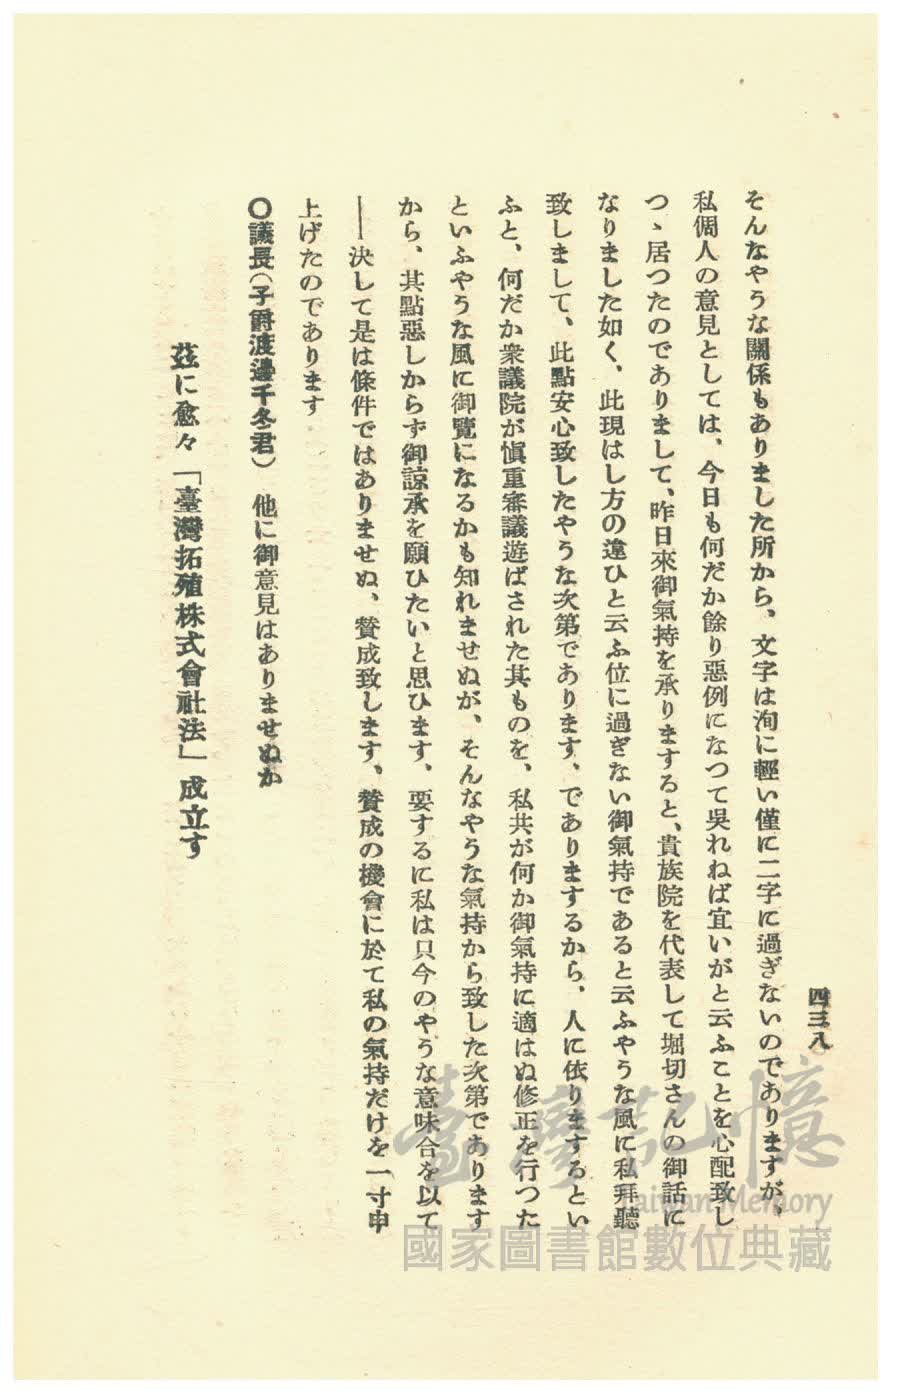 四三八
そんなやうな關係もありました所から、文字は洵に輕い僅に二字に過ぎないのでありますが、
私個人の意見としては、今日も何だか餘り惡例になつて呉れねば宜いがと云ふことを心配致し
つゝ居つたのでありまして、昨日來御氣持を承りますると、貴族院を代表して堀切さんの御話に
なりました如く、此現はし方の違ひと云ふ位に過ぎない御氣持であると云ふやうな風に私拜聽
致しまして、此點安心致したやうな次第であります、でありまするから、人に依りまするとい
ふと、何だか衆議院が愼重審議遊ばされた其ものを、私共が何か御氣持に適はぬ修正を行つた
といふやうな風に御覽になるかも知れませぬが、そんなやうな氣持から致した次第であります
から、其點惡しからず御諒承を願ひたいと思ひます、要するに私は只今のやうな意味合を以て
――決して是は條件ではありませぬ、贊成致します、贊成の機會に於て私の氣持だけを一寸申
上げたのであります
〇議長(子爵渡邊千冬君) 他に御意見はありませぬか
茲に愈々「臺灣拓殖株式會社法」成立す
臺灣記憶
Taiwan Memory
國家圖書館數位典藏